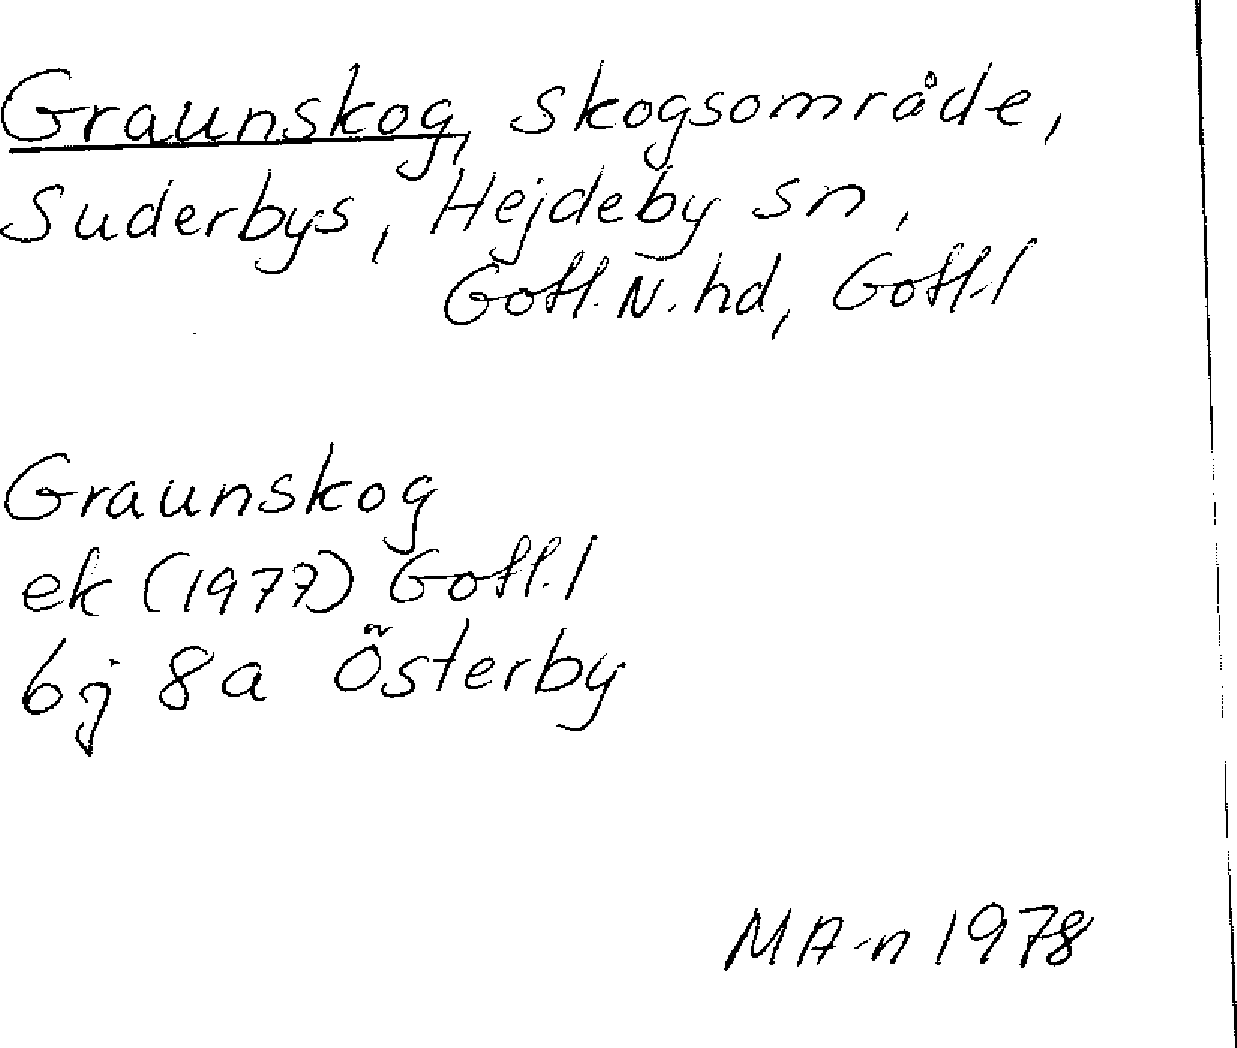 Graunskog, skogsområde,
Suderbys, Hejdeby sn,
Gotl. N. hd, Gotl. l
Graunskog
ek (1977) Gotl. l
6j 8a Österby
MA-n 1978